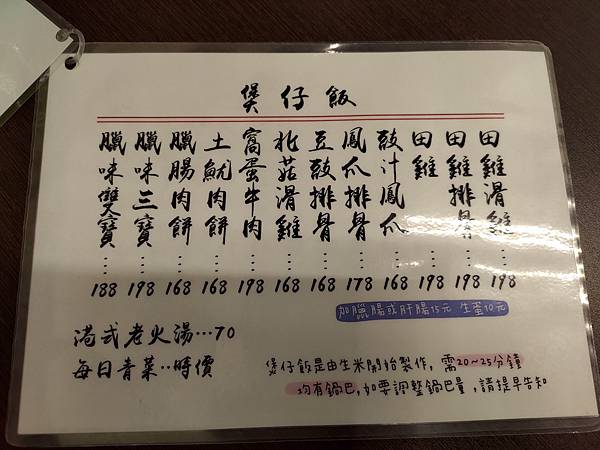 煲仔飯
田雞滑雞…198
田雞排骨…198
田雞…198
豉汁鳳爪…168
鳳爪排骨…178
豆豉排骨…168
北菇滑雞…168
窩蛋牛肉…198
土魷肉餅…168
臘腸肉餅…168
臘味三寶…198
臘味雙寶…188
加臘腸或肝腸15元 生蛋10元
港式老火湯…70
每日青菜‥時價
煲仔飯是由生米開始製作,需20~25分鐘
均有鍋巴,如要調整鍋巴量,請提早告知